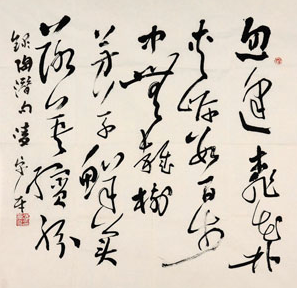 忽逢桃花林
夾岸數百步
中無雜樹
芳草鮮美
落英繽紛
録陶潛句